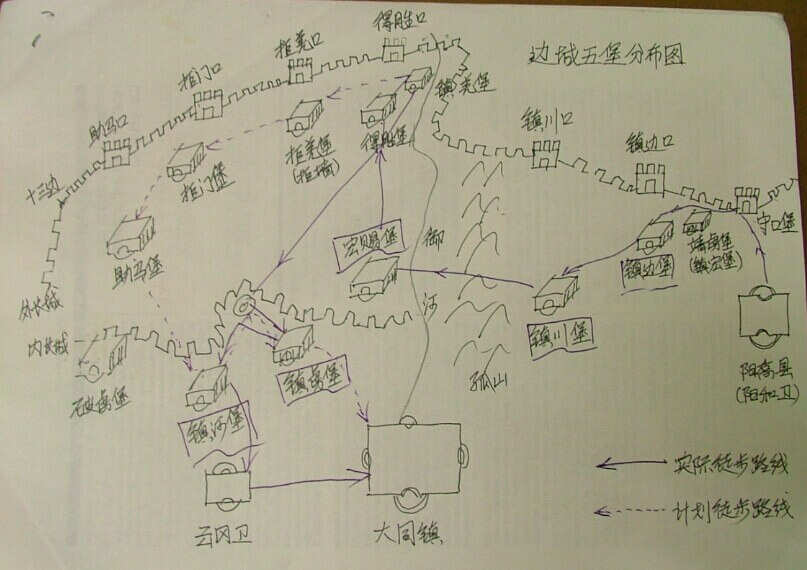 边城五堡分布图
得胜口
拒羌口
拒门口
助马口
十二边
镇羌堡
得胜堡
拒羌堡
(拒墙)
拒门堡
助马堡
镇川口
镇边口
守口堡
宏赐堡
御
河
镇边堡
(镇宏堡)
镇川堡
阳高县
(阳和卫)
外长城
内长城
破虏堡
镇河堡
镇虏堡
孤山
云冈卫
大同镇
实际徒步路线
计划徒步路线